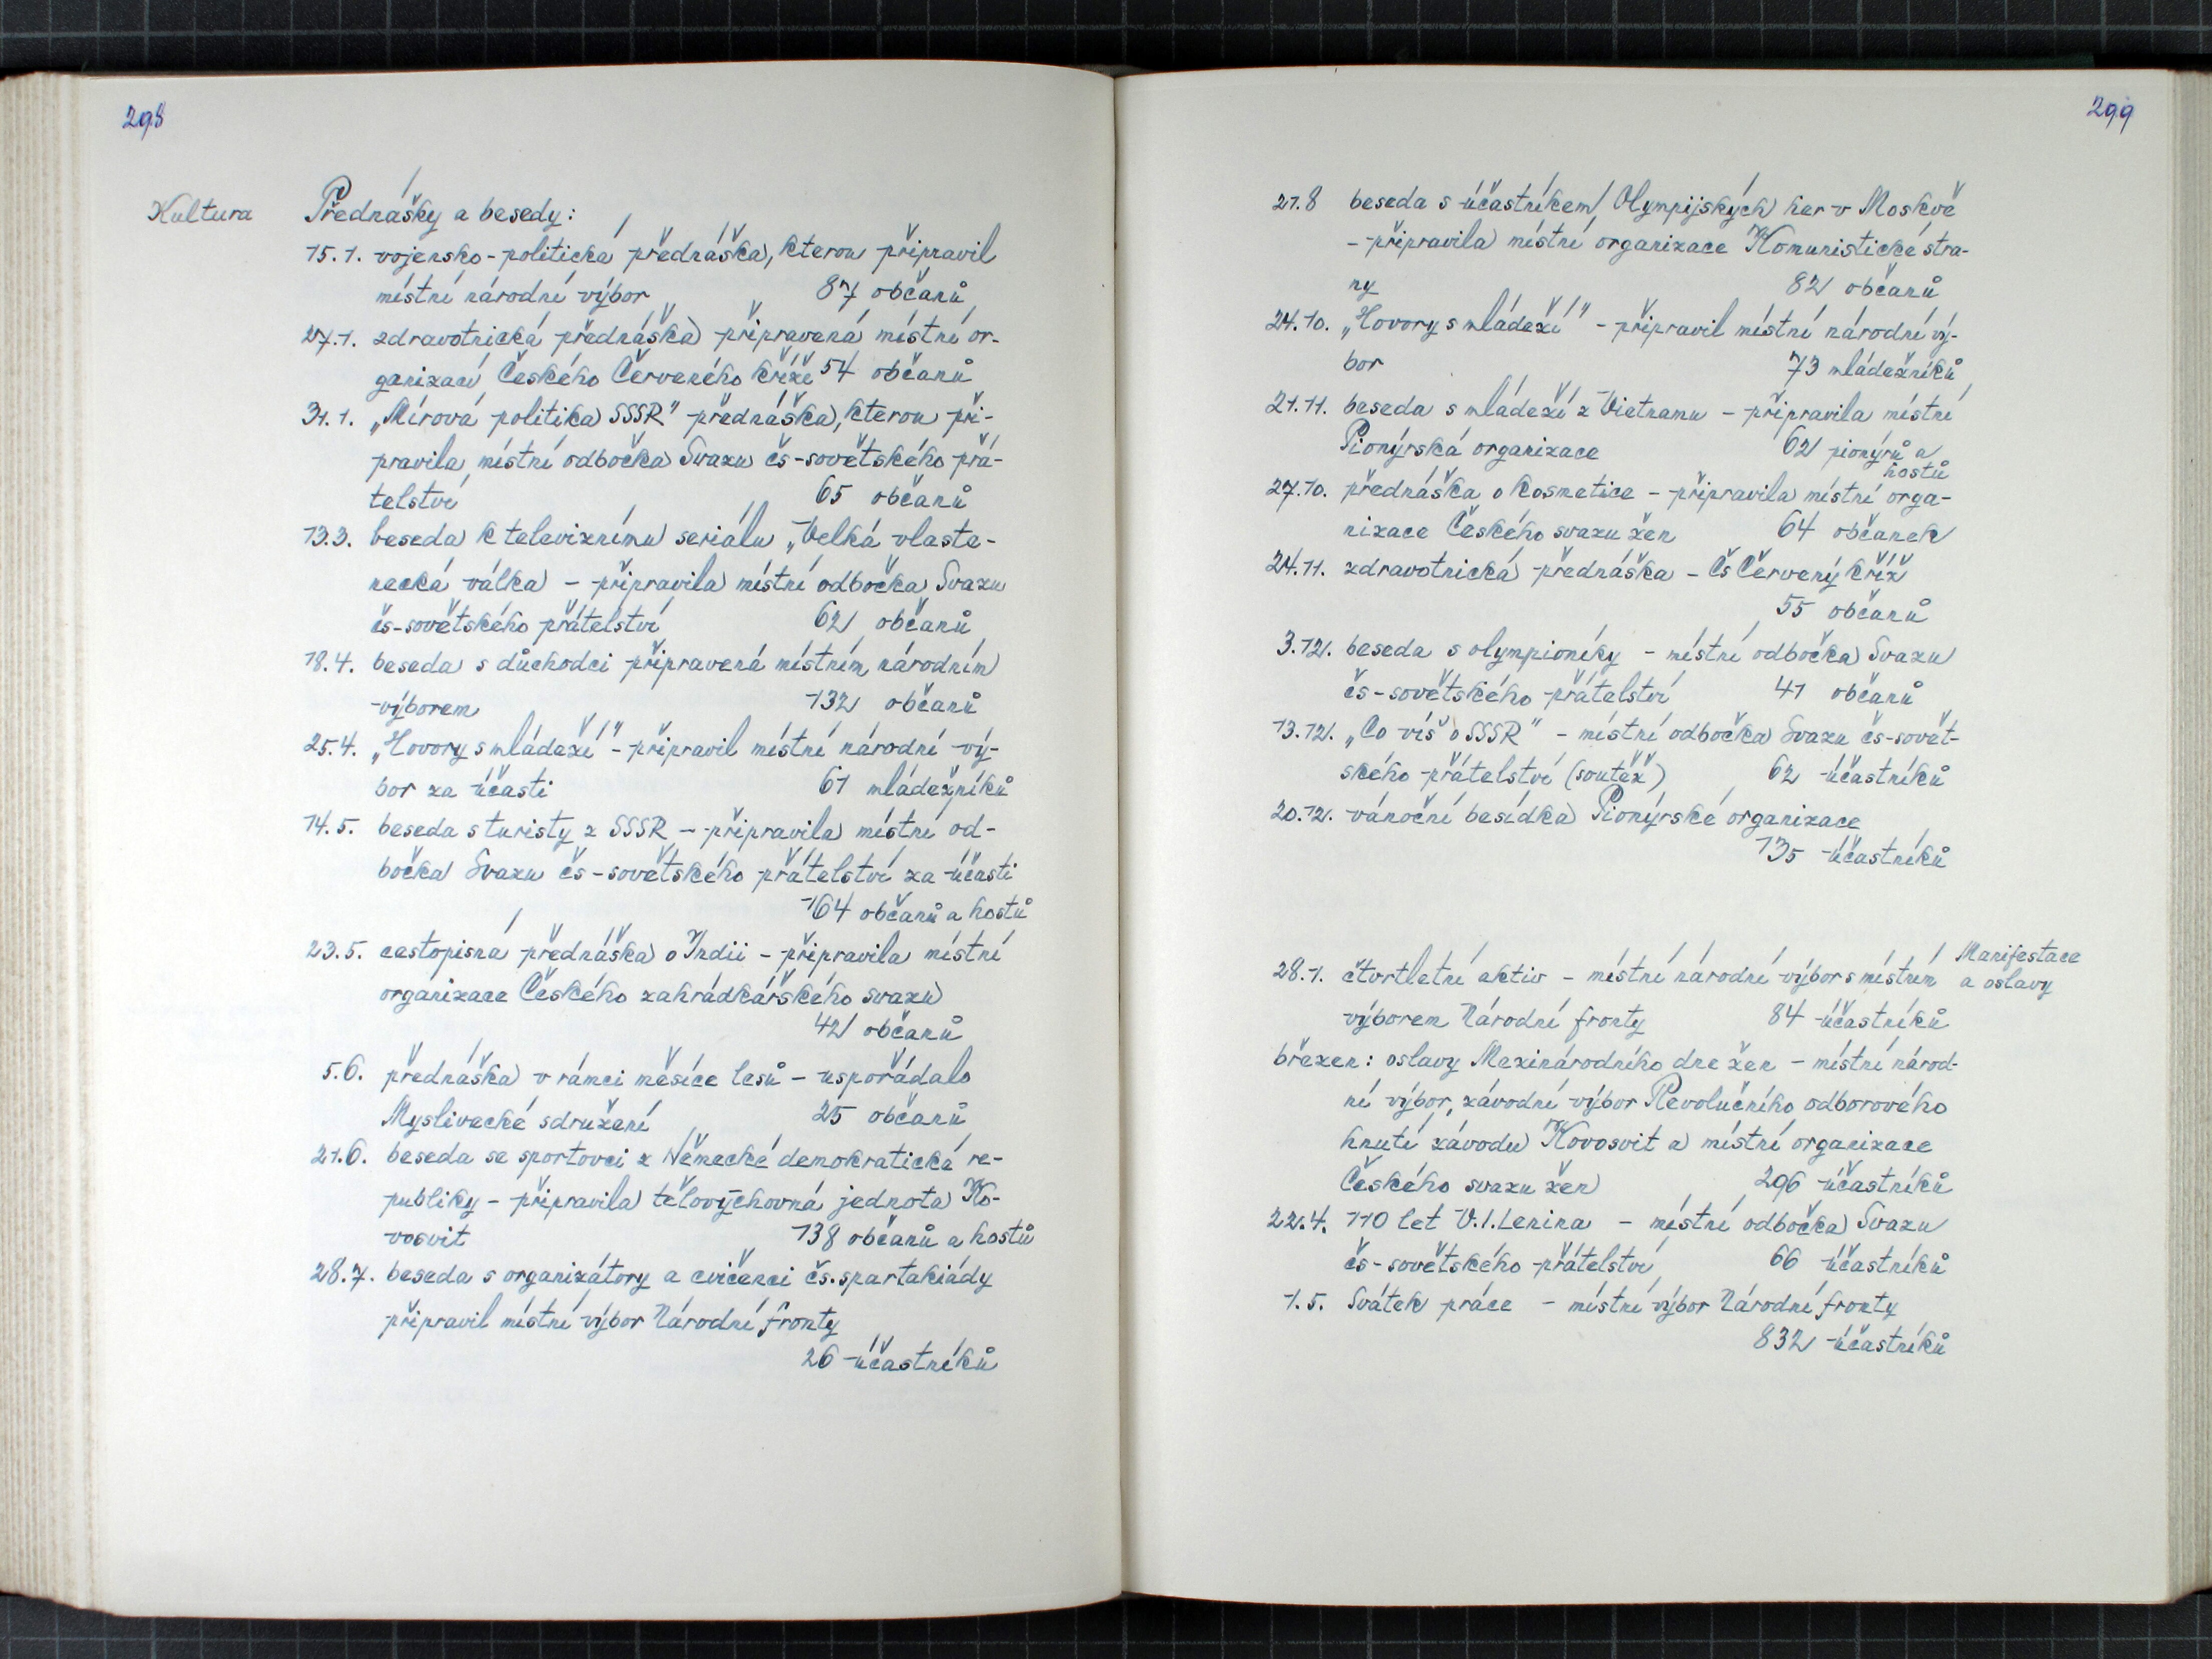 298
Kultura
Přednášky a besedy:
15.1. vojensko-politická přednáška, kterou připravil
místní národní výbor 87 občanů
27.1. zdravotnická přednáška připravená místní or-
ganizací Českého Červeného kříže 54 občanů
31.1. „Mírová politika SSSR" přednáška, kterou při-
pravila místní odbočka Svazu čs-sovětského přá-
telství 65 občanů
13.3. beseda k televiznímu seriálu „Velká vlaste-
necká válka - připravila místní odbočka Svazu
čs-sovětského přátelství 62 občanů
18.4. beseda s důchodci připravená místním národním
výborem 132 občanů
25.4. „Hovory s mládeží" - připravil místní národní vý-
bor za účasti 61 mládežníků
14.5. beseda s turisty z SSSR - připravila místní od-
bočka Svazu čs-sovětského přátelství za účasti
164 občanů a hostů
23.5. cestopisná přednáška o Indii - připravila místní
organizace Českého zahrádkářského svazu
42 občanů
5.6. přednáška v rámci měsíce lesů - uspořádalo
Myslivecké sdružení 25 občanů
21.6. beseda se sportovci z Německé demokratické re-
publiky - připravila tělovýchovná jednota Ko-
vosvit 138 občanů a hostů
28.7. beseda s organizátory a cvičenci čs. spartakiády
připravil místní výbor Národní fronty
26 účastníků
299
21.8 beseda s účastníkem Olympijských her v Moskvě
- připravila místní organizace Komunistické stra-
ny 82 občanů
24.10. „Hovory s mládeží" - připravil místní národní vý-
bor 73 mládežníků
21.11. beseda s mládeží z Vietnamu - připravila místní
Pionýrská organizace 62 pionýrů a
hostů
27.10. přednáška o kosmetice - připravila místní orga-
nizace Českého svazu žen 64 občanek
24.11. zdravotnická přednáška - Čs Červený kříž
55 občanů
3.12. beseda s olympioniky - místní odbočka Svazu
čs-sovětského přátelství 41 občanů
13.12. „Co víš o SSSR" - místní odbočka Svazu čs-sovět-
ského přátelství (soutěž) 62 účastníků
20.12. vánoční besídka Pionýrské organizace
135 účastníků
Manifestace
a oslavy
28.1. čtvrtletní aktiv - místní národní výbor s místním
výborem Národní fronty 84 účastníků
březen: oslavy Mezinárodního dne žen - místní národ-
ní výbor, závodní výbor Revolučního odborového
hnutí závodu Kovosvit a místní organizace
Českého svazu žen 296 účastníků
22.4. 110 let V.I. Lenina - místní odbočka Svazu
čs-sovětského přátelství 66 účastníků
1.5. Svátek práce - místní výbor Národní fronty
832 účastníků